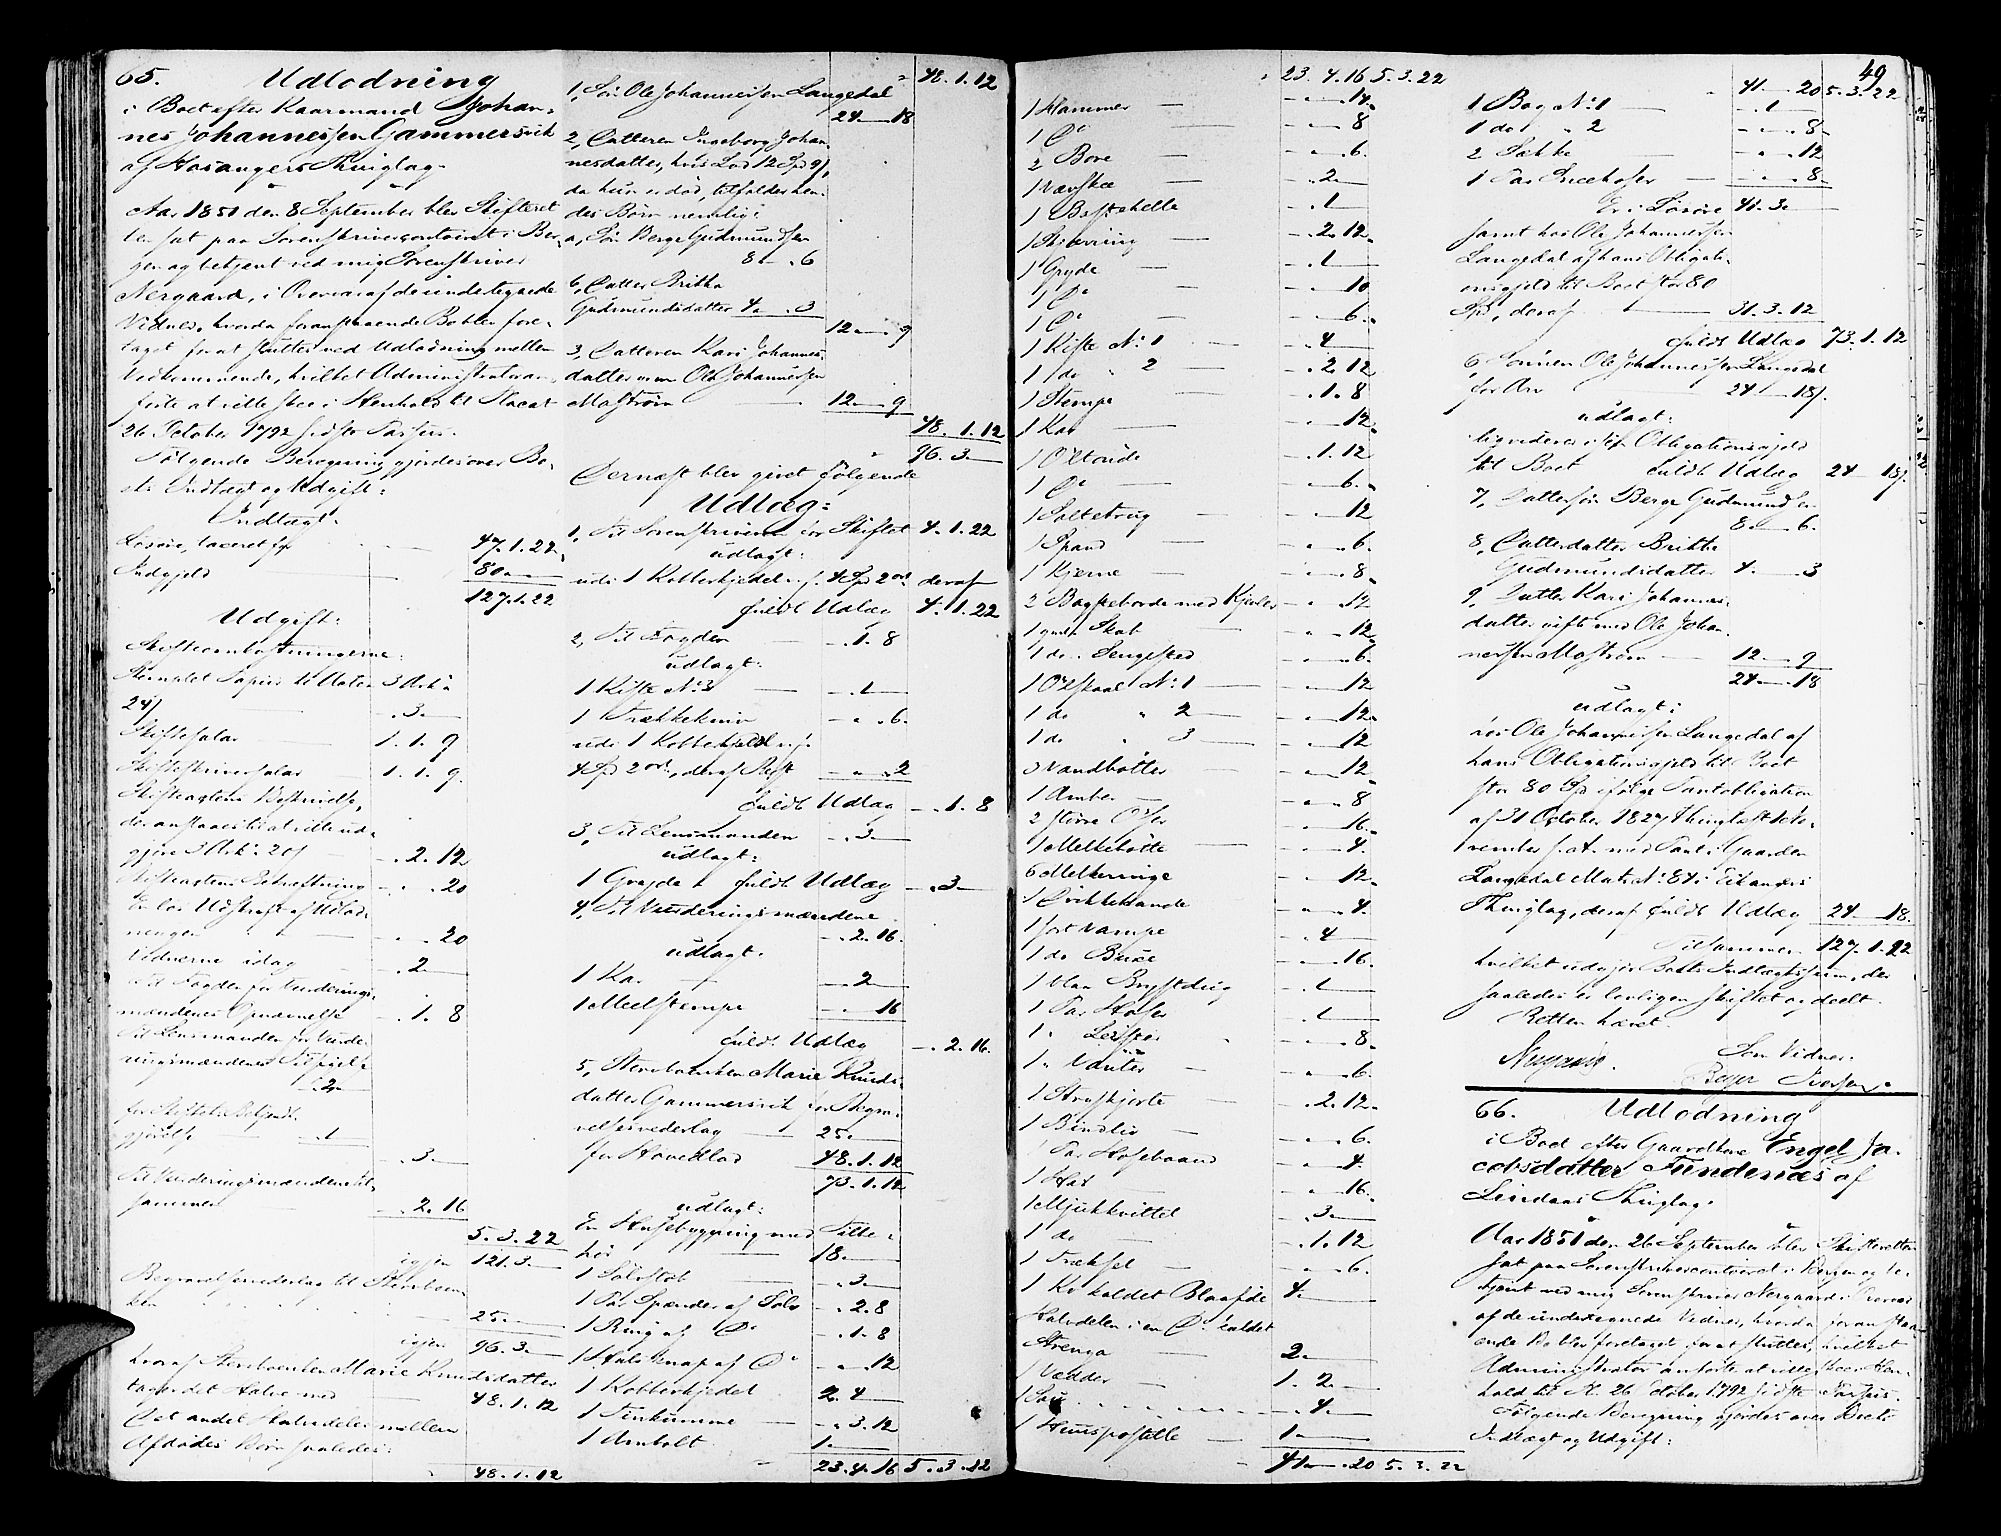 65. Udlodning
i Boet efter Kaarmand Johan-
nes Johannessen Gammersvik
af Hosangers Thinglag.
Aar 1851 den 8 September blev Skifteret
ten sat paa Sorenskrivercontoiret i Ber-
gen og betjent ved mig Sorenskriver
Nergaard, i Overvær af de undertegnede
Vidner, hvorda foranstaaende Bo blev fore-
taget for at slutte ved Udlodning mellem
Vedkommende, hvilket Administrator an-
førte at ville skee i Henhold til Placat
26 October 1792 sidste Passus.
Følgende Beregning gjordes over Bo-
ets Indtægt og Udgift:
Indtægt:
Løsøre, taxeret for 47. 1. 22
Indgjeld 80
127. 1. 22
Udgift:
Skifteomkostningerne:
Stemplet Papir til Acten 3 Ark a
24 ß - 3 -
Skiftesalar 1. 1. 9
Skifteskriversalar 1. 1. 9.
Skifteactens Beskrivelse,
der antages til at ville ud-
gjøre 3 Ark a 20 ß - 2. 12
Skifteactens Bekræftning - - 20
En lov. Udskrift af Udlod-
ningen - - 20
Vidnerne idag - 2 -
Til Fogden for Vurderings-
mændenes Opnævnelse - 1. 8
Til Lensmanden for Vurde
ringsmændenes Tilsigel-
se - 2 -
for Skiftets Bekjendt-
gjørelse - 1 -
- 3 -
Til Vurderingsmændene til-
sammen - 2. 16
5. 3. 22
igjen 121. 3 -
Begravelsesvederlag til Stervboen-
ken 25 -
igjen 96. 3 -
hvoraf Stervboenken Marie Knudsdatter
tager det Halve med 48. 1. 12
Det andet Halve deles mellem
Afdødes Børn saaledes:
48. 1. 12
48. 1. 12
1, Søn Ole Johannessen Langedal
24 - 18
2, Datteren Ingeborg Johan-
nesdatter, hvis Lod 12 Spd 9 ß,
da hun er død, tilfalder hen-
des Børn nemlig:
a, Søn Berge Gudmundsen
8 - 6
b, Datter Britha
Gudmundsdatter 4 - 3
12 - 9
3, Datteren Kari Johannes-
datter Ole Johannessen
Mostrøm 12 - 9
48. 1. 12
96. 3 -
Dernæst blev gjort følgende
Udlæg:
1, Til Sorenskriveren for Skiftet 4. 1. 22
udlagt:
udi 1 Kobberkjedel 4 Spd 2 ort deraf
fuldt Udlæg 4. 1. 22
2, Til Fogden - 1. 8
udlagt:
1 Kiste No 3 - 1 -
1 Trækkekniv - - 6.
udi 1 Kobberkjedel
4 Spd 2 ort, deraf Rest - - 2
fuldt Udlæg - 1. 8
3, Til Lensmanden - 3 -
udlagt:
1 Gryde fuldt Udlæg - 3 -
4, Til Vurderingsmændene
- 2. 16.
udlagt.
1 Kar - 2 -
1 Meelstampe - - 16
fuldt Udlæg - 2. 16.
5, Stervboenken Marie Knuds-
datter Gammersvik for Begra-
velsesvederlag 25 -
for Hovedlod 48. 1. 12
73. 1. 12
udlagt:
En Huusebygning med Tilbe-
hør 18 -
1 Sølvstøb - 3 -
1 Par Spænder af Sølv - 2. 8
1 Ring af Do - 1. 8
1 Halsknap af Do - - 12
1 Kobberkjedel 2. 4 -
1 Tinkumme - 3. 12
1 Ambolt 1 -
23. 4. 16 5. 3. 22
23. 4. 16 5. 3. 22
1 Hammer - - 14
1 Do - - 8
2 Bore - - 6.
1 - 2 -
1 - 1 -
1 - 2. 12
1 Gryde - 1 -
1 Do - - 10
1 Do - - 6.
1 Kiste No 1 - 4 -
1 do " 2 - 2. 12
1 Stampe - 1. 8
1 Kar - - 12
1 Øltønde - 1. 12
1 Do - - 6.
1 Saltetrug - - 12
1 Spand - - 6.
1 Kjerne - - 8
2 Bagsteborde med Kjevler - - 12
1 gml. Skab - - 12
1 do. Sengested - - 6
1 Ølskaal No 1 - - 12
1 do " 2 - - 12
1 do " 3 - - 12
3 Vandbøtter - - 12
1 Amber - - 8
2 større Øser - - 16.
1 Melkebøtte - - 4.
6 Melkeringe - - 12
1 - - 4.
1 sort Vampe - 4 -
1 do Buxe - - 16.
1 blaa Brystdug - 1 -
1 Par Hoser - 1 -
1 " - - 8
1 " Vanter - - 6.
1 Strieskjorte - 2. 12
1 - - 6
1 Par Hosebaand - - 4.
1 Hat - - 16.
1 - 3 -
1 do - 1. 12
1 - - 6
1 Ko kaldet Blaafde 4 -
Halvdelen i en Do kaldet
Strenga 2 -
1 Vædder 1. 2 -
1 Sau - 4 -
1 Huuspostille 1 -
41 - 20 5. 3. 22
49
41 - 20 5. 3. 22
1 Bog No 1 - 1 -
1 do " 2 - - 8
2 Sække - - 12
1 Par Sneehoser - - 8
Er i Løsøre 41. 3 -
samt hos Ole Johannessen
Langedal af hans Obligati-
onsgjeld til Boet stor 80
Spd, deraf 31. 3. 12
fuldt Udlæg 73. 1. 12
6, Sønnen Ole Johannessen Langedal
for Arv 24 - 18 ß.
udlagt:
Obligationsgjeld
til Boet fuldt Udlæg 24 - 18 ß
7, Dattersøn Berge Gudmundsen
8 - 6.
8, Datterdatter Britha
Gudmundsdatter 4. - 3
9, Datter Kari Johannes-
datter gift med Ole Johan-
nessen Mostrøm 12 - 9
24 - 18
udlagt:
hos Ole Johannessen Langedal af
hans Obligationsgjeld til Boet
stor 80 Spd ifølge Pantobligation
af 31 October 1827 thinglæst No-
vember s. A. med Pant i Gaarden
Langedal Matr. No 84 i Eikangers
Thinglag, deraf fuldt Udlæg 24 - 18.
Tilsammen 127. 1. 22
hvilket udgjør Boets Indtægtssum, der
saaledes er lovligen skiftet og deelt.
Retten hævet.
Nergaard. Som Vidner:
Beyer Iversen
66. Udlodning
i Boet efter Gaardkone Engel Ja-
cobsdatter Fundenæs af
Lindaas Thinglag.
Aar 1851 den 26 September blev Skifteretten
sat paa Sorenskrivercontoiret i Bergen og be-
tjent ved mig Sorenskriver Nergaard i Overvær
af de undertegnede Vidner, hvorda foranstaa-
ende Bo blev foretaget for at sluttes, hvilket
Administrator anførte at ville skee i Hen-
hold til Pl. 26 October 1792 sidste Passus.
Følgende Beregning gjordes over Boets
Indtægt og Udgift: